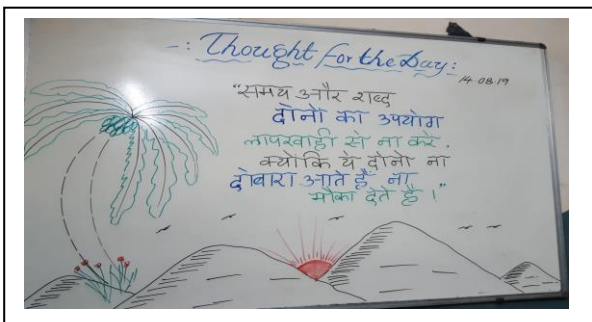 -: Thought for the Day:
14.08.19
"समय और शब्द
दोनो का उपयोग
लापरवाही से ना करे.
क्योंकि ये दोनो ना
दोबारा आते हैं ना
मौका देते हैं।"